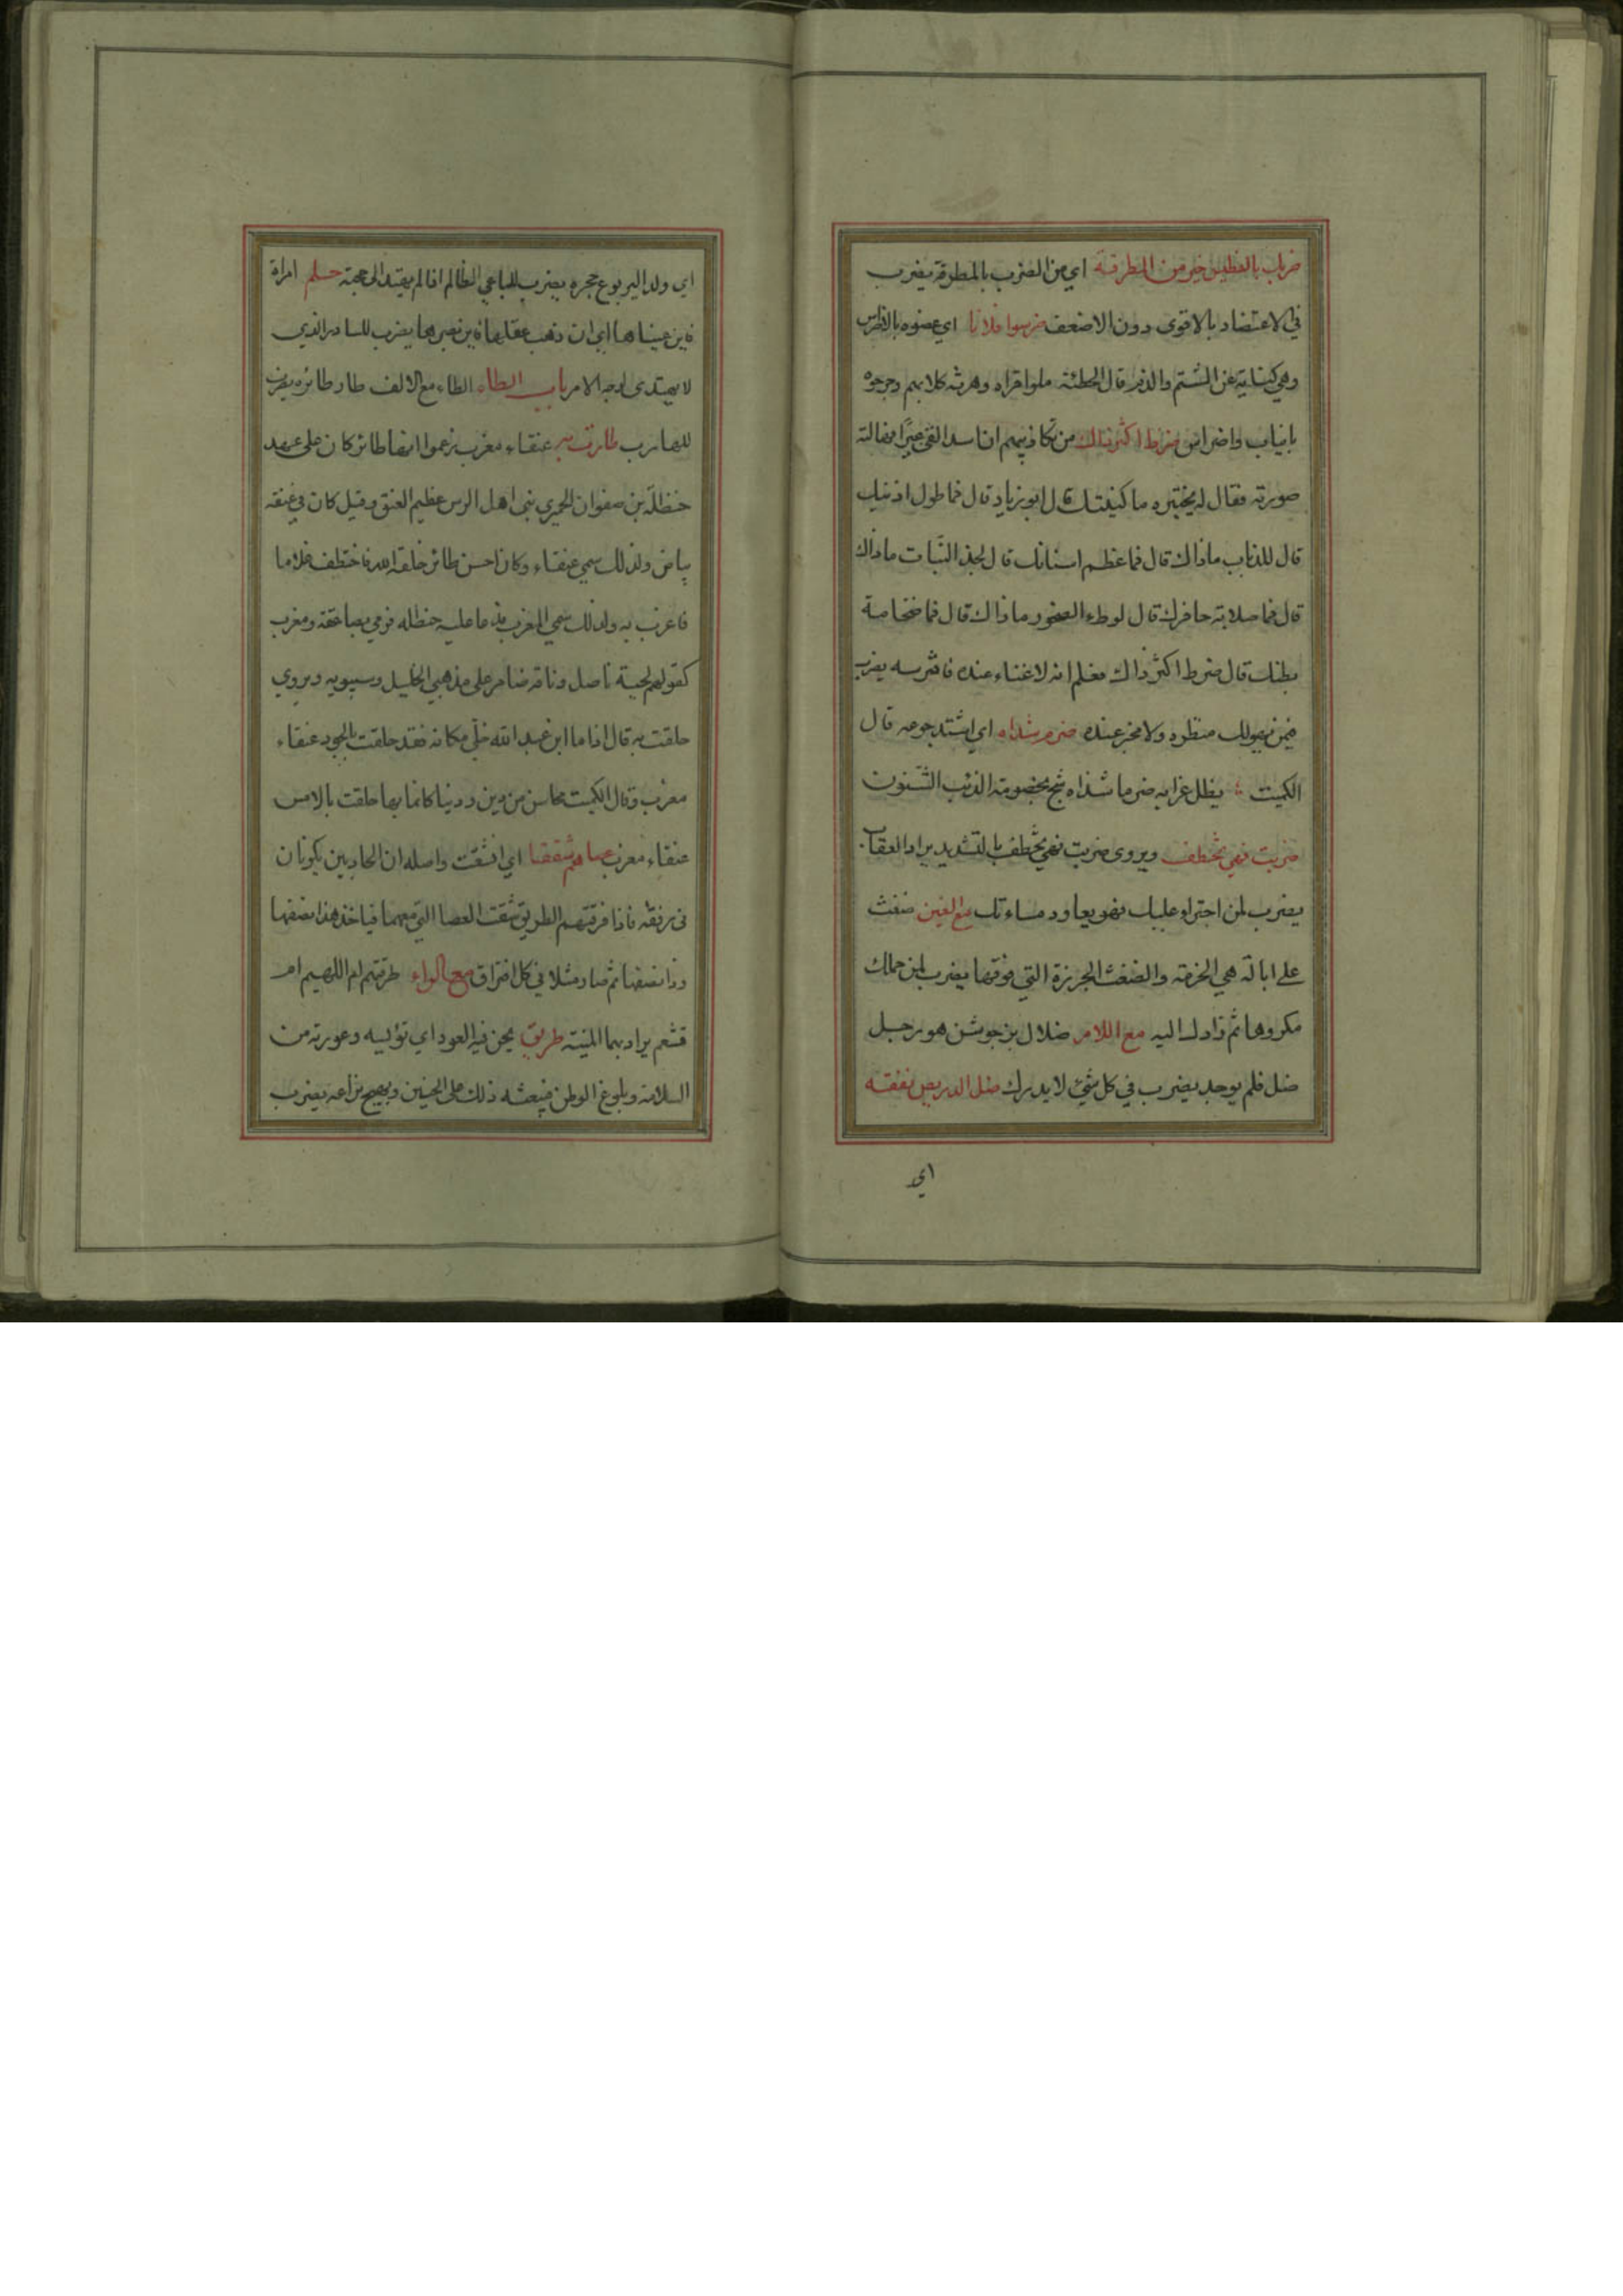 ضربك بالفطيس خير من المطرقة اي من الضرب بالمطرقة يضرب
في الاعتضاد بالاقوى دون الاضعف ضرسوا فلانا اي عضوه بالاضراس
وهي كناية عن الشتم والذم قال الحطئة ملوا قراه وهرته كلابهم وجرحوه
بانياب واضراس ضرط اكثر ذلك من تكاذيبهم ان اسد القى عيرا فهالته
صورته فقال له يختبره ما كنيتك قال ابو زياد قال فما طول اذنيك
قال للذباب ماذاك قال فما عظم اسنانك قال لجذ النبات ماذاك
قال فما صلابة حافرك قال لوطء الصخور ماذاك قال فما ضخامة
بطنك قال ضرط اكثر ذاك فعلم انه لا غناء عنده فافترسه يضرب
فيمن يهولك منظره ولا مخبر عنده ضرم شذاه اي اشتد جوعه قال
الكميت يظل غرابه ضرما شذاه شج بخصومة الذئب الشنون
ضربت فهي تخطف ويروى ضربت فهي تخطف بالتشديد يراد العقاب
يضرب لمن اجترء عليك فهو يعاود مساءتك مع الغين ضغث
على ابالة هي الحزمة والضغث الجرزة التي فوقها يضرب لمن حملك
مكروها ثم زادك اليه مع اللام ضلال بن جوشن هو رجل
ضل فلم يوجد يضرب في كل شيء لا يدرك ضل الدريص نفقه
اي
اي ولد اليربوع حجره يضرب للباغي الظالم اذا لم يهتد الى حجته حلم امراة
فاين عيناها اي ان ذهب عقلها فاين بصرها يضرب للسادر الذي
لا يهتدي لوجه الامر باب الطاء الطاء مع الالف طار طائره يضرب
للهارب طارت به عنقاء مغرب زعموا انها طائر كان على عهد
حنظلة بن صفوان الحميري نبي اهل الرس عظيم العنق وقيل كان في عنقه
بياض ولذلك سمي عنقاء وكان احسن طائر خلقه الله فاختطف غلاما
فاغرب به ولذلك سمي المغرب فدعا عليه حنظله فرمي بصاعقة ومغرب
كقولهم لحية ناصل وناقة ضامر على مذهبي الخليل وسيبويه ويروي
حلقت به قال اذا ما ابن عبد الله خلى مكانه فقد حلقت بالجود عنقاء
مغرب وقال الكميت محاسن من دين ودنيا كانما بها حلقت بالامس
عنقاء مغرب عصاهم شققا اي انشقت واصله ان الحاديين يكونان
في رفقة فاذا فرقهم الطريق شقت العصا التي معهما فياخذ هذا نصفها
وذا نصفها ثم صار مثلا في كل افتراق مع الراء طرقتهم ام اللهيم ام
قشعم يراد بهما المنية طريق يحن فيه العود اي توليه وعورته من
السلامة وبلوغ الوطن فيبعثه ذلك على الحنين ويهيج نزاعه يضرب